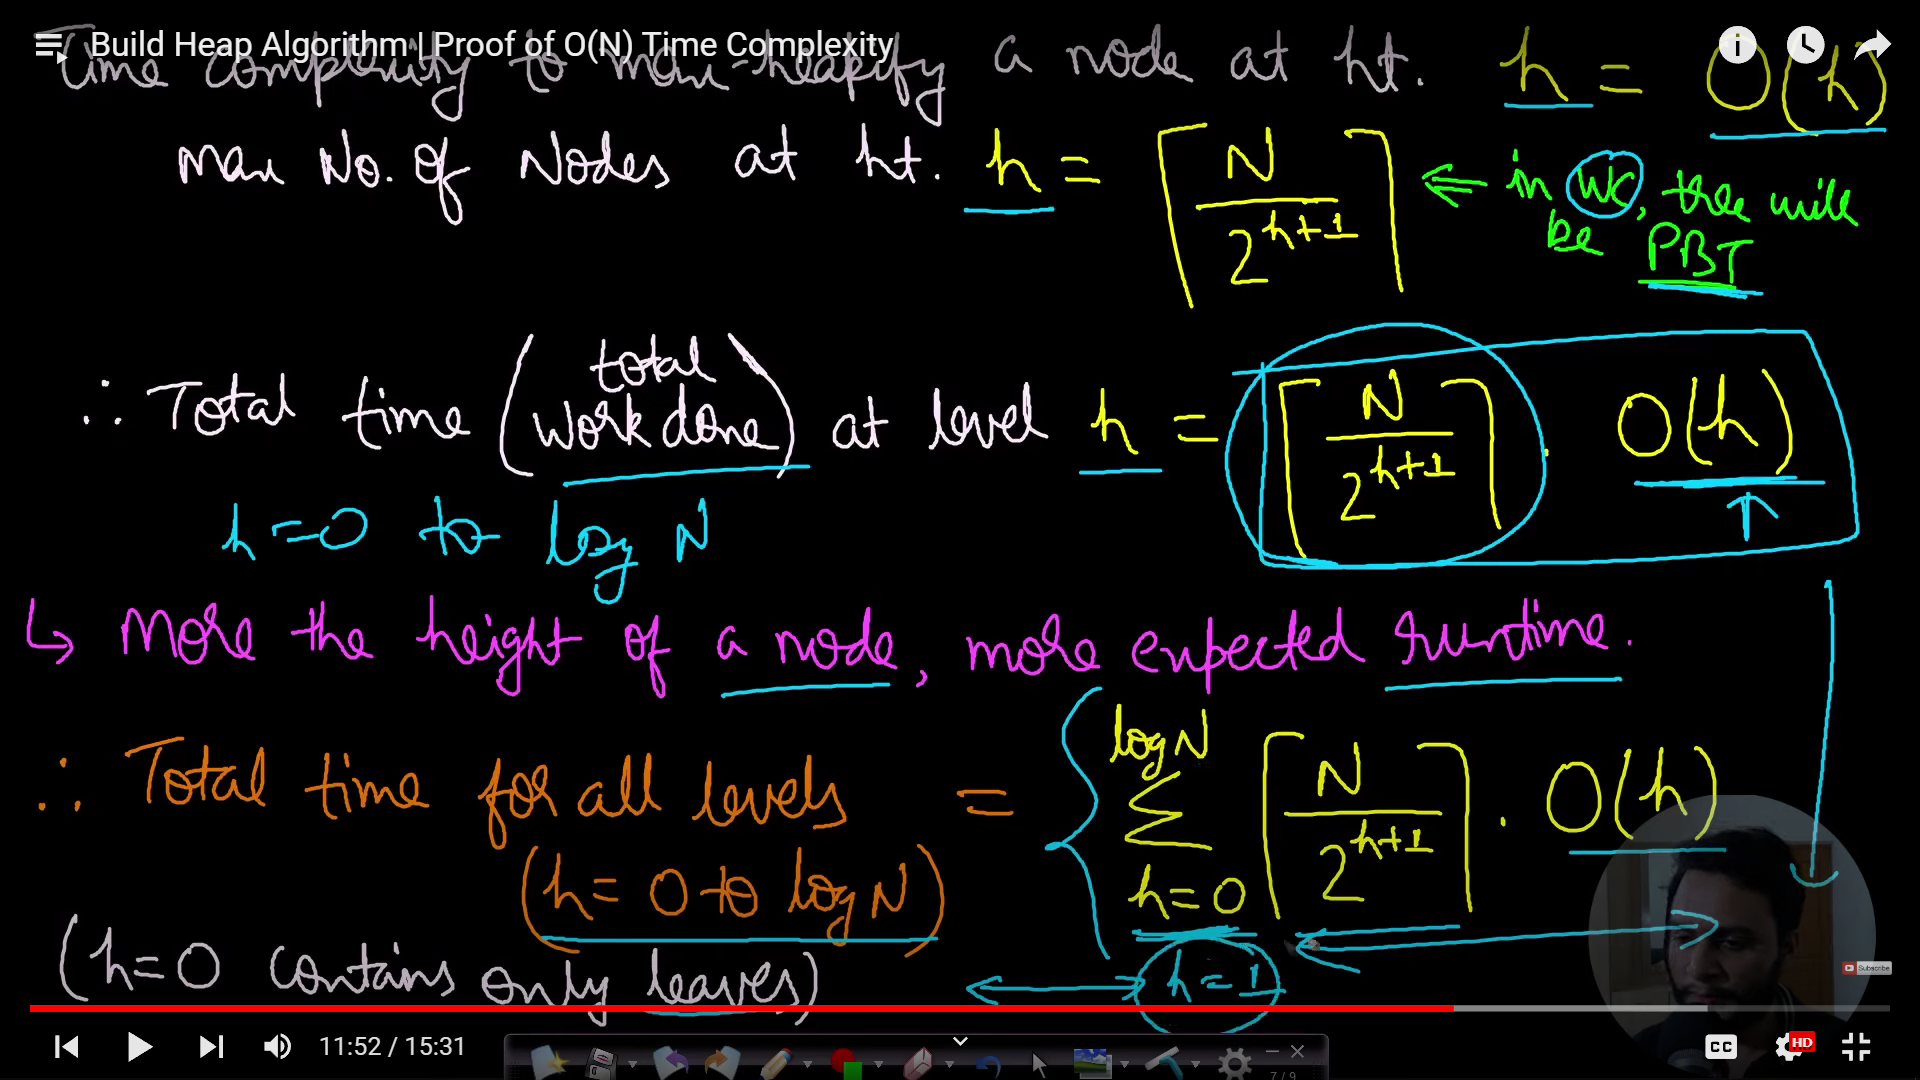 Build Heap Algorithm | Proof of O(N) Time Complexity
Time complexity to max-heapify a node at ht. h = O(h)
max No. of Nodes at ht. h = ⌈N / 2^(h+1)⌉ ⇐ in WC, tree will be PBT
∴ Total time (total work done) at level h = ⌈N / 2^(h+1)⌉ . O(h)
h=0 to log N
↳ More the height of a node, more expected runtime.
∴ Total time for all levels = ∑ log N h=0 ⌈N / 2^(h+1)⌉ . O(h)
(h= 0 to log N)
(h=0 contains only leaves) h=1
Subscribe
11:52 / 15:31
CC
HD
7 / 9